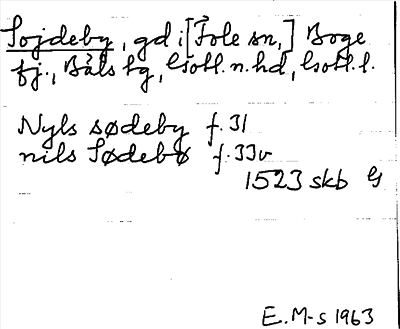 Sojdeby, gd i [Fole sn,] Boge
fj., Bäls tg, Gotl. n. hd, Gotl. l.
Nyls sødeby f. 31
nils Sødebø f. 33v
1523 skb G
E. M-s 1963